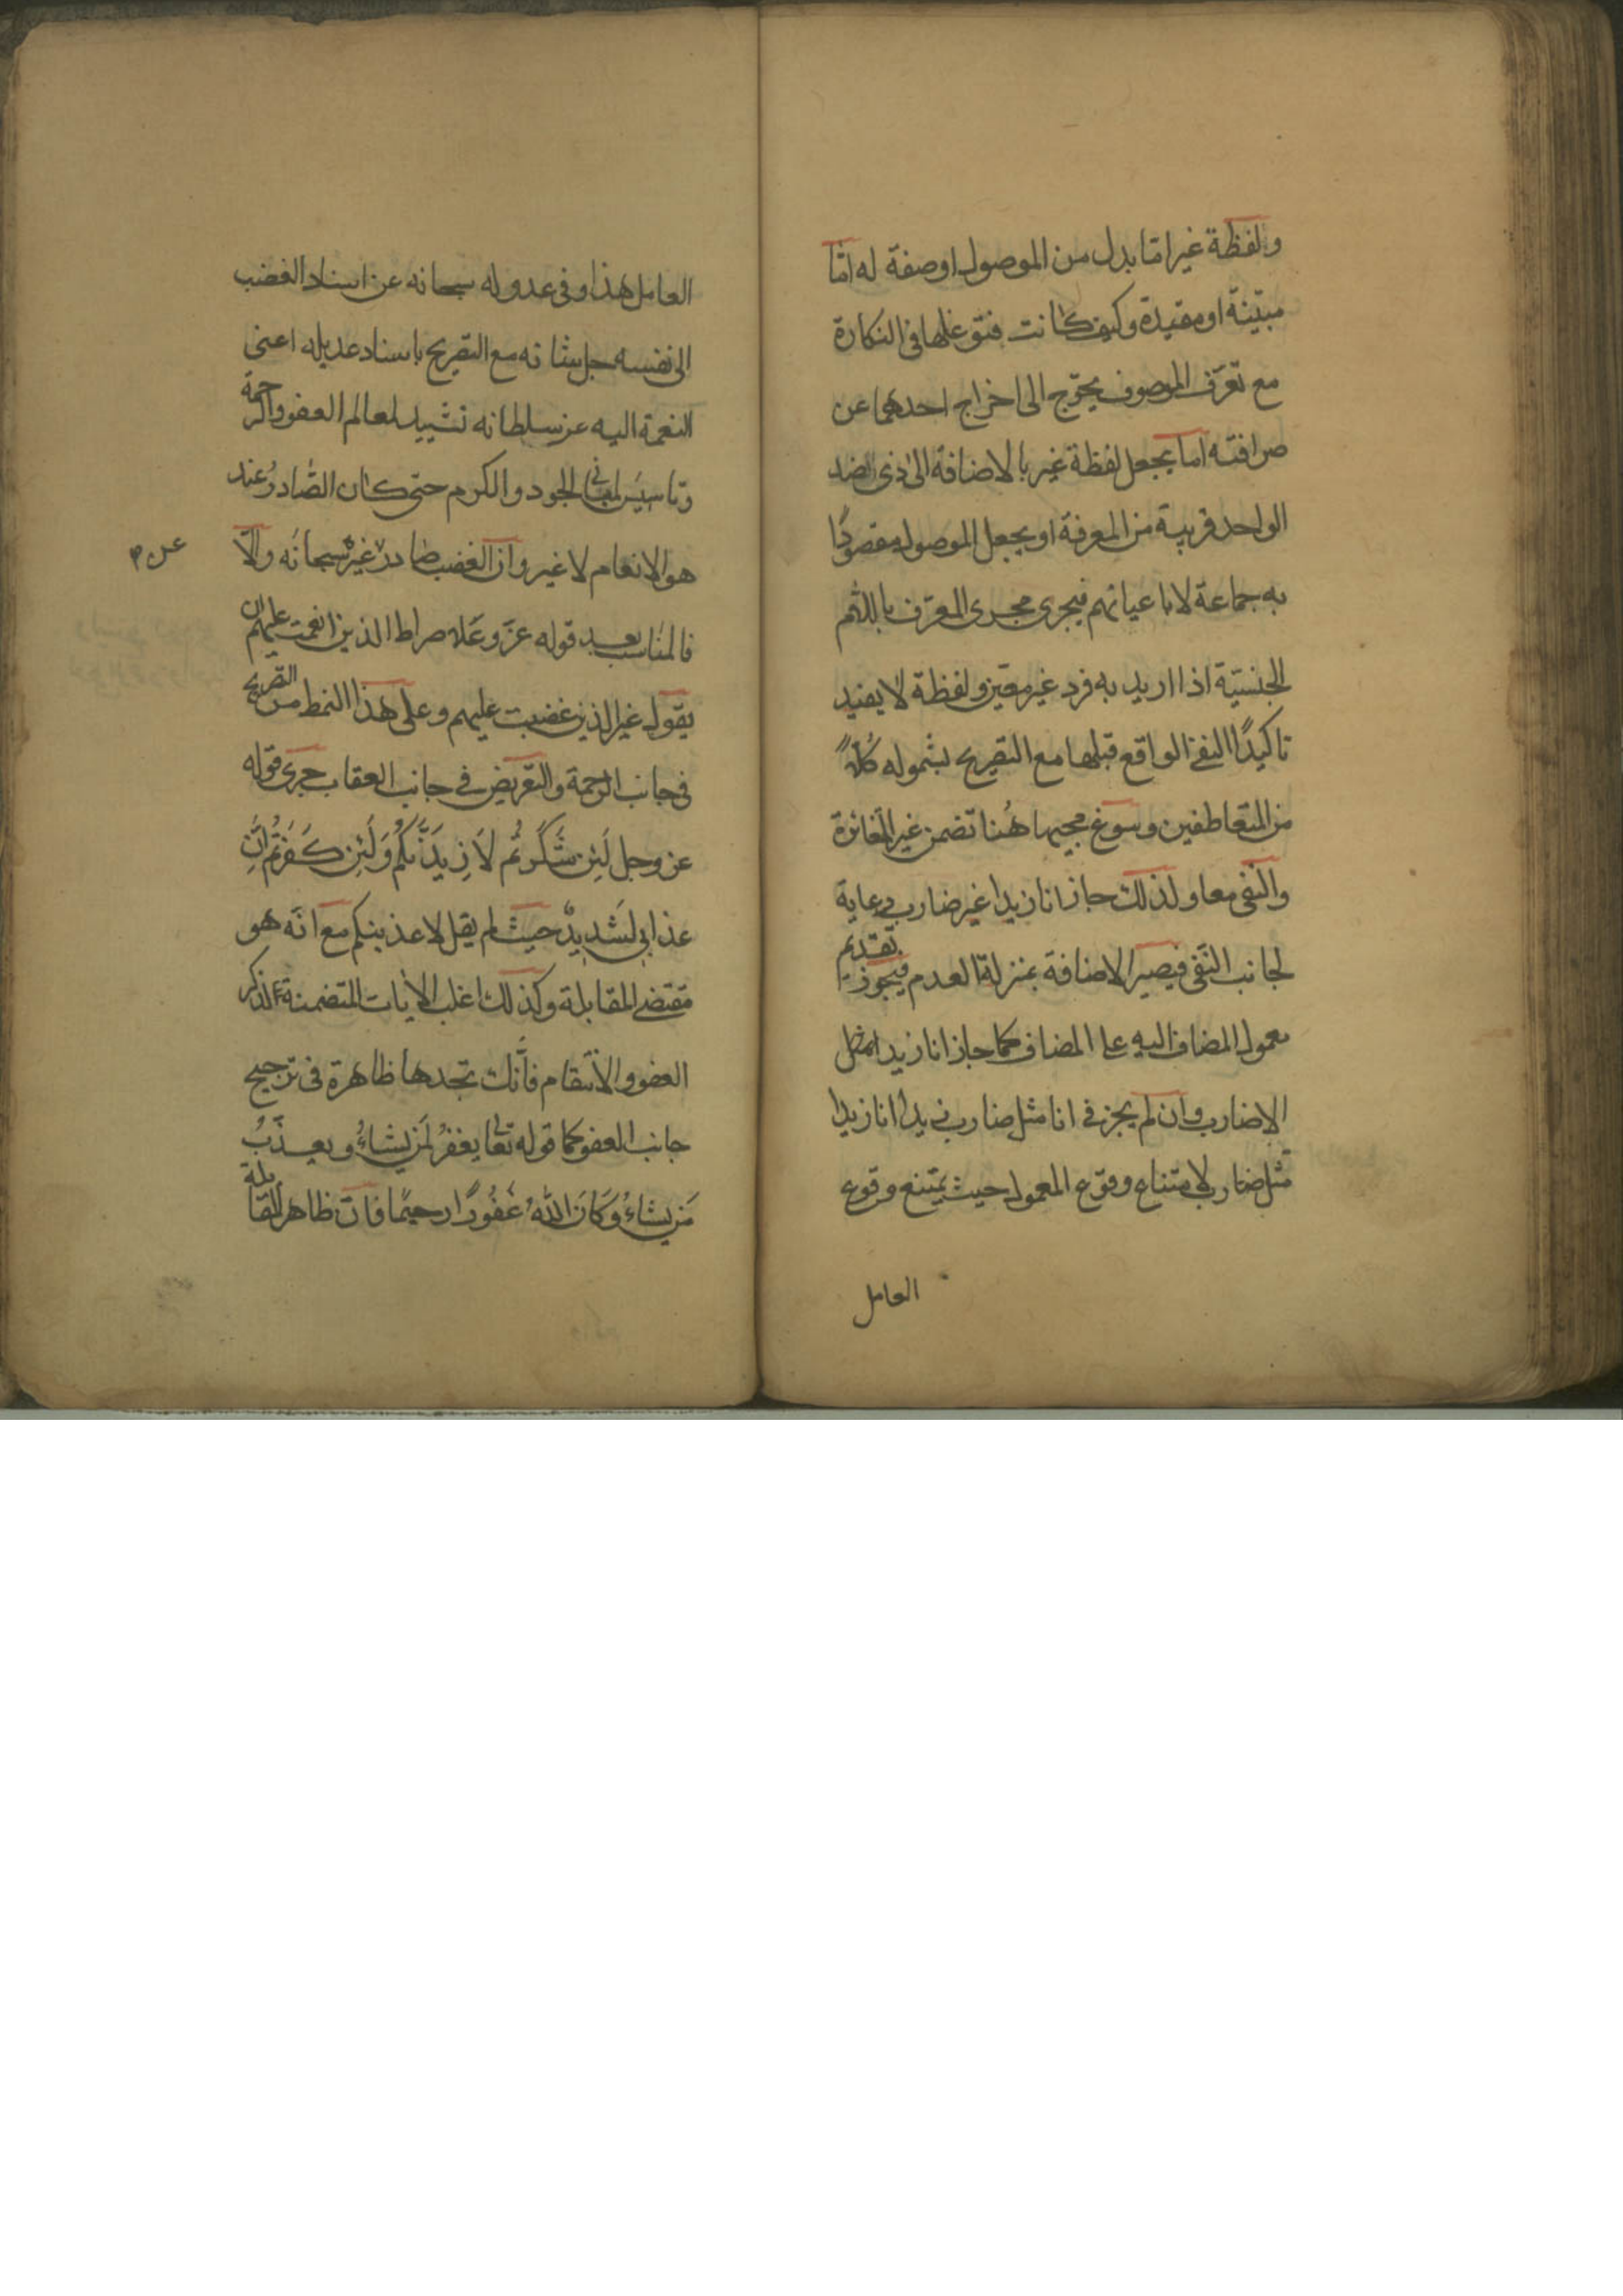 ولفظة غير اما بدل من الموصول او صفة له اما
مبيّنة او مقيدة وكيف كانت فتوغلها في النكارة
مع تعرّف الموصوف يحوّج الى اخراج احدهما عن
صرافته اما بجعل لفظة غير بالاضافة الى ذي الضد
الواحد قريبة من المعرفة او بجعل الموصول مقصودًا
به جماعة لا باعيانهم فيجرى مجرى المعرّف باللام
الجنسيّة اذا اريد به فرد غير معين ولفظة لا يفيد
تاكيدًا النفى الواقع قبلها مع التصريح بشموله كلاً
من المتعاطفين وسوغ مجيها هُنا تضمن غير المغائرة
والنفى معا ولذلك جاز انا زيدا غير ضارب رعاية
لجانب النّفى فيصير الاضافة بمنزلة العدم فيجوز تقديم
معمول المضاف اليه على المضاف كما جاز انا زيدا
الاضارب وان لم يجز في انا مثل ضارب زيدا انا زيدا
مثل ضارب لامتناع وقوع المعمول حيث يمتنع وقوع
العامل
العامل هذا وفى عدوله سبحانه عن اسناد الغضب
الى نفسه جل شانه مع التصريح باسناد عديله اعنى
النعمة اليه عز سلطانه تشييد لمعالم العفو والرحمة
وتاسيس لمبانى الجود والكرم حتى كان الصّادر عنه
هو الانعام لا غير وان الغضب صادر عن غيره سبحانه والّا
فالمناسب بعد قوله عزّ وعَلا صراط الذين انعمت عليهم ان
يقول غير الذين غضبت عليهم وعلى هذا النمط من التصريح
فى جانب الرحمة والتعريض فى جانب العقاب جرى قوله
عز وجل لَئِن شَكَرتُم لاَزِيدَنَّكُم وَلَئِن كَفَرتُم اِنَّ
عذابى لَشديدٌ حيث لم يقل لاعذبنكم مع انّه هو
مقتضى المقابلة وكذلك اغلب الايات المتضمنة لذكر
العفو والانتقام فانّك تجدها ظاهرة فى ترجيح
جانب العفو كما قوله تعالى يغفرُ لمَن يشاءُ ويعذّبُ
مَن يشاءُ وَكَانَ اللهُ غَفُورًا رحيمًا فانّ ظاهر المقابلة